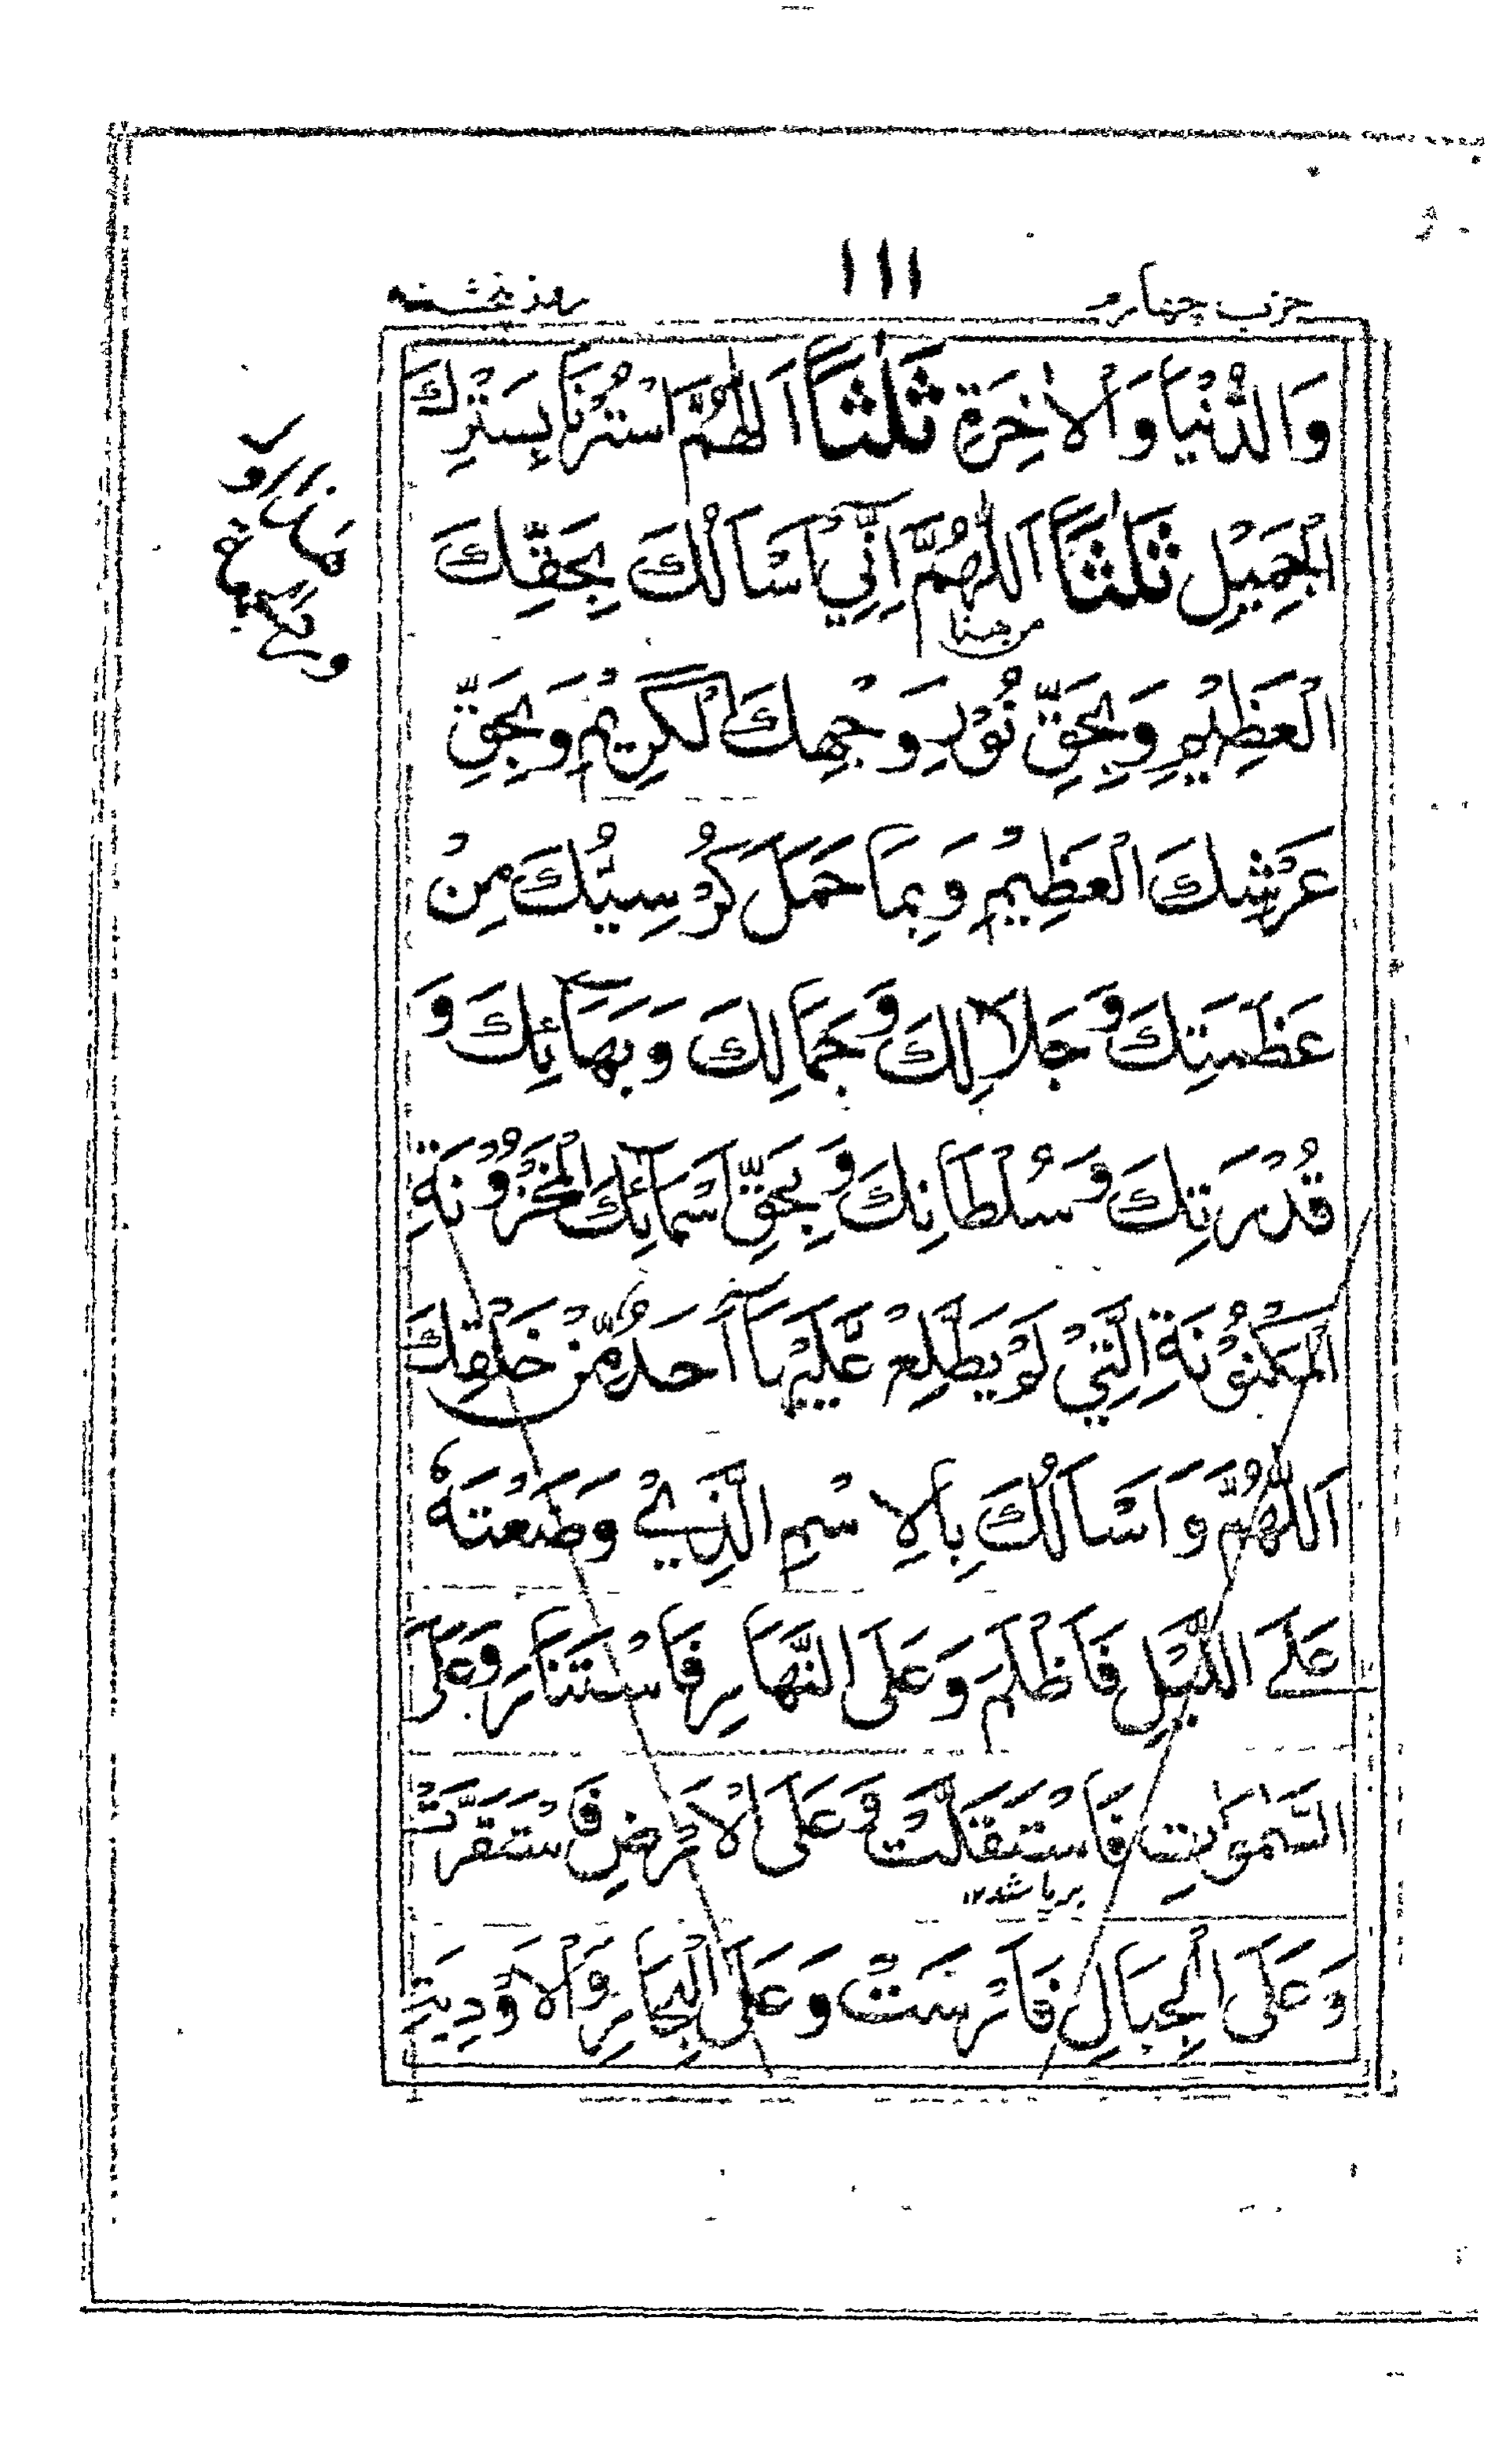 حزب چهارم ١١١ روز پنجشنبه
وَالدُّنْيَا وَالْاٰخِرَةِ ثَلٰثًا اَللّٰهُمَّ اسْتُرْنَا بِسَتْرِكَ
الْجَمِيْلِ ثَلٰثًا اَللّٰهُمَّ اِنِّيْٓ اَسْاَلُكَ بِحَقِّكَ
الْعَظِيْمِ وَبِحَقِّ نُوْرِ وَجْهِكَ الْكَرِيْمِ وَبِحَقِّ
عَرْشِكَ الْعَظِيْمِ وَبِمَا حَمَلَ كُرْسِيُّكَ مِنْ
عَظَمَتِكَ وَجَلَالِكَ وَجَمَالِكَ وَبَهَآئِكَ وَ
قُدْرَتِكَ وَسُلْطَانِكَ وَبِحَقِّ اَسْمَآئِكَ الْمَخْزُوْنَةِ
الْمَكْنُوْنَةِ الَّتِيْ لَمْ يَطَّلِعْ عَلَيْهَآ اَحَدٌ مِّنْ خَلْقِكَ
اَللّٰهُمَّ وَاَسْاَلُكَ بِالْاِسْمِ الَّذِيْ وَضَعْتَهٗ
عَلَى اللَّيْلِ فَاَظْلَمَ وَعَلَى النَّهَارِ فَاسْتَنَارَ وَعَلَى
السَّمٰوٰتِ فَاسْتَقَلَّتْ وَعَلَى الْاَرْضِ فَاسْتَقَرَّتْ
برپا شد ۱۲
وَعَلَى الْجِبَالِ فَاَرْسَتْ وَعَلَى الْبِحَارِ وَالْاَوْدِيَةِ